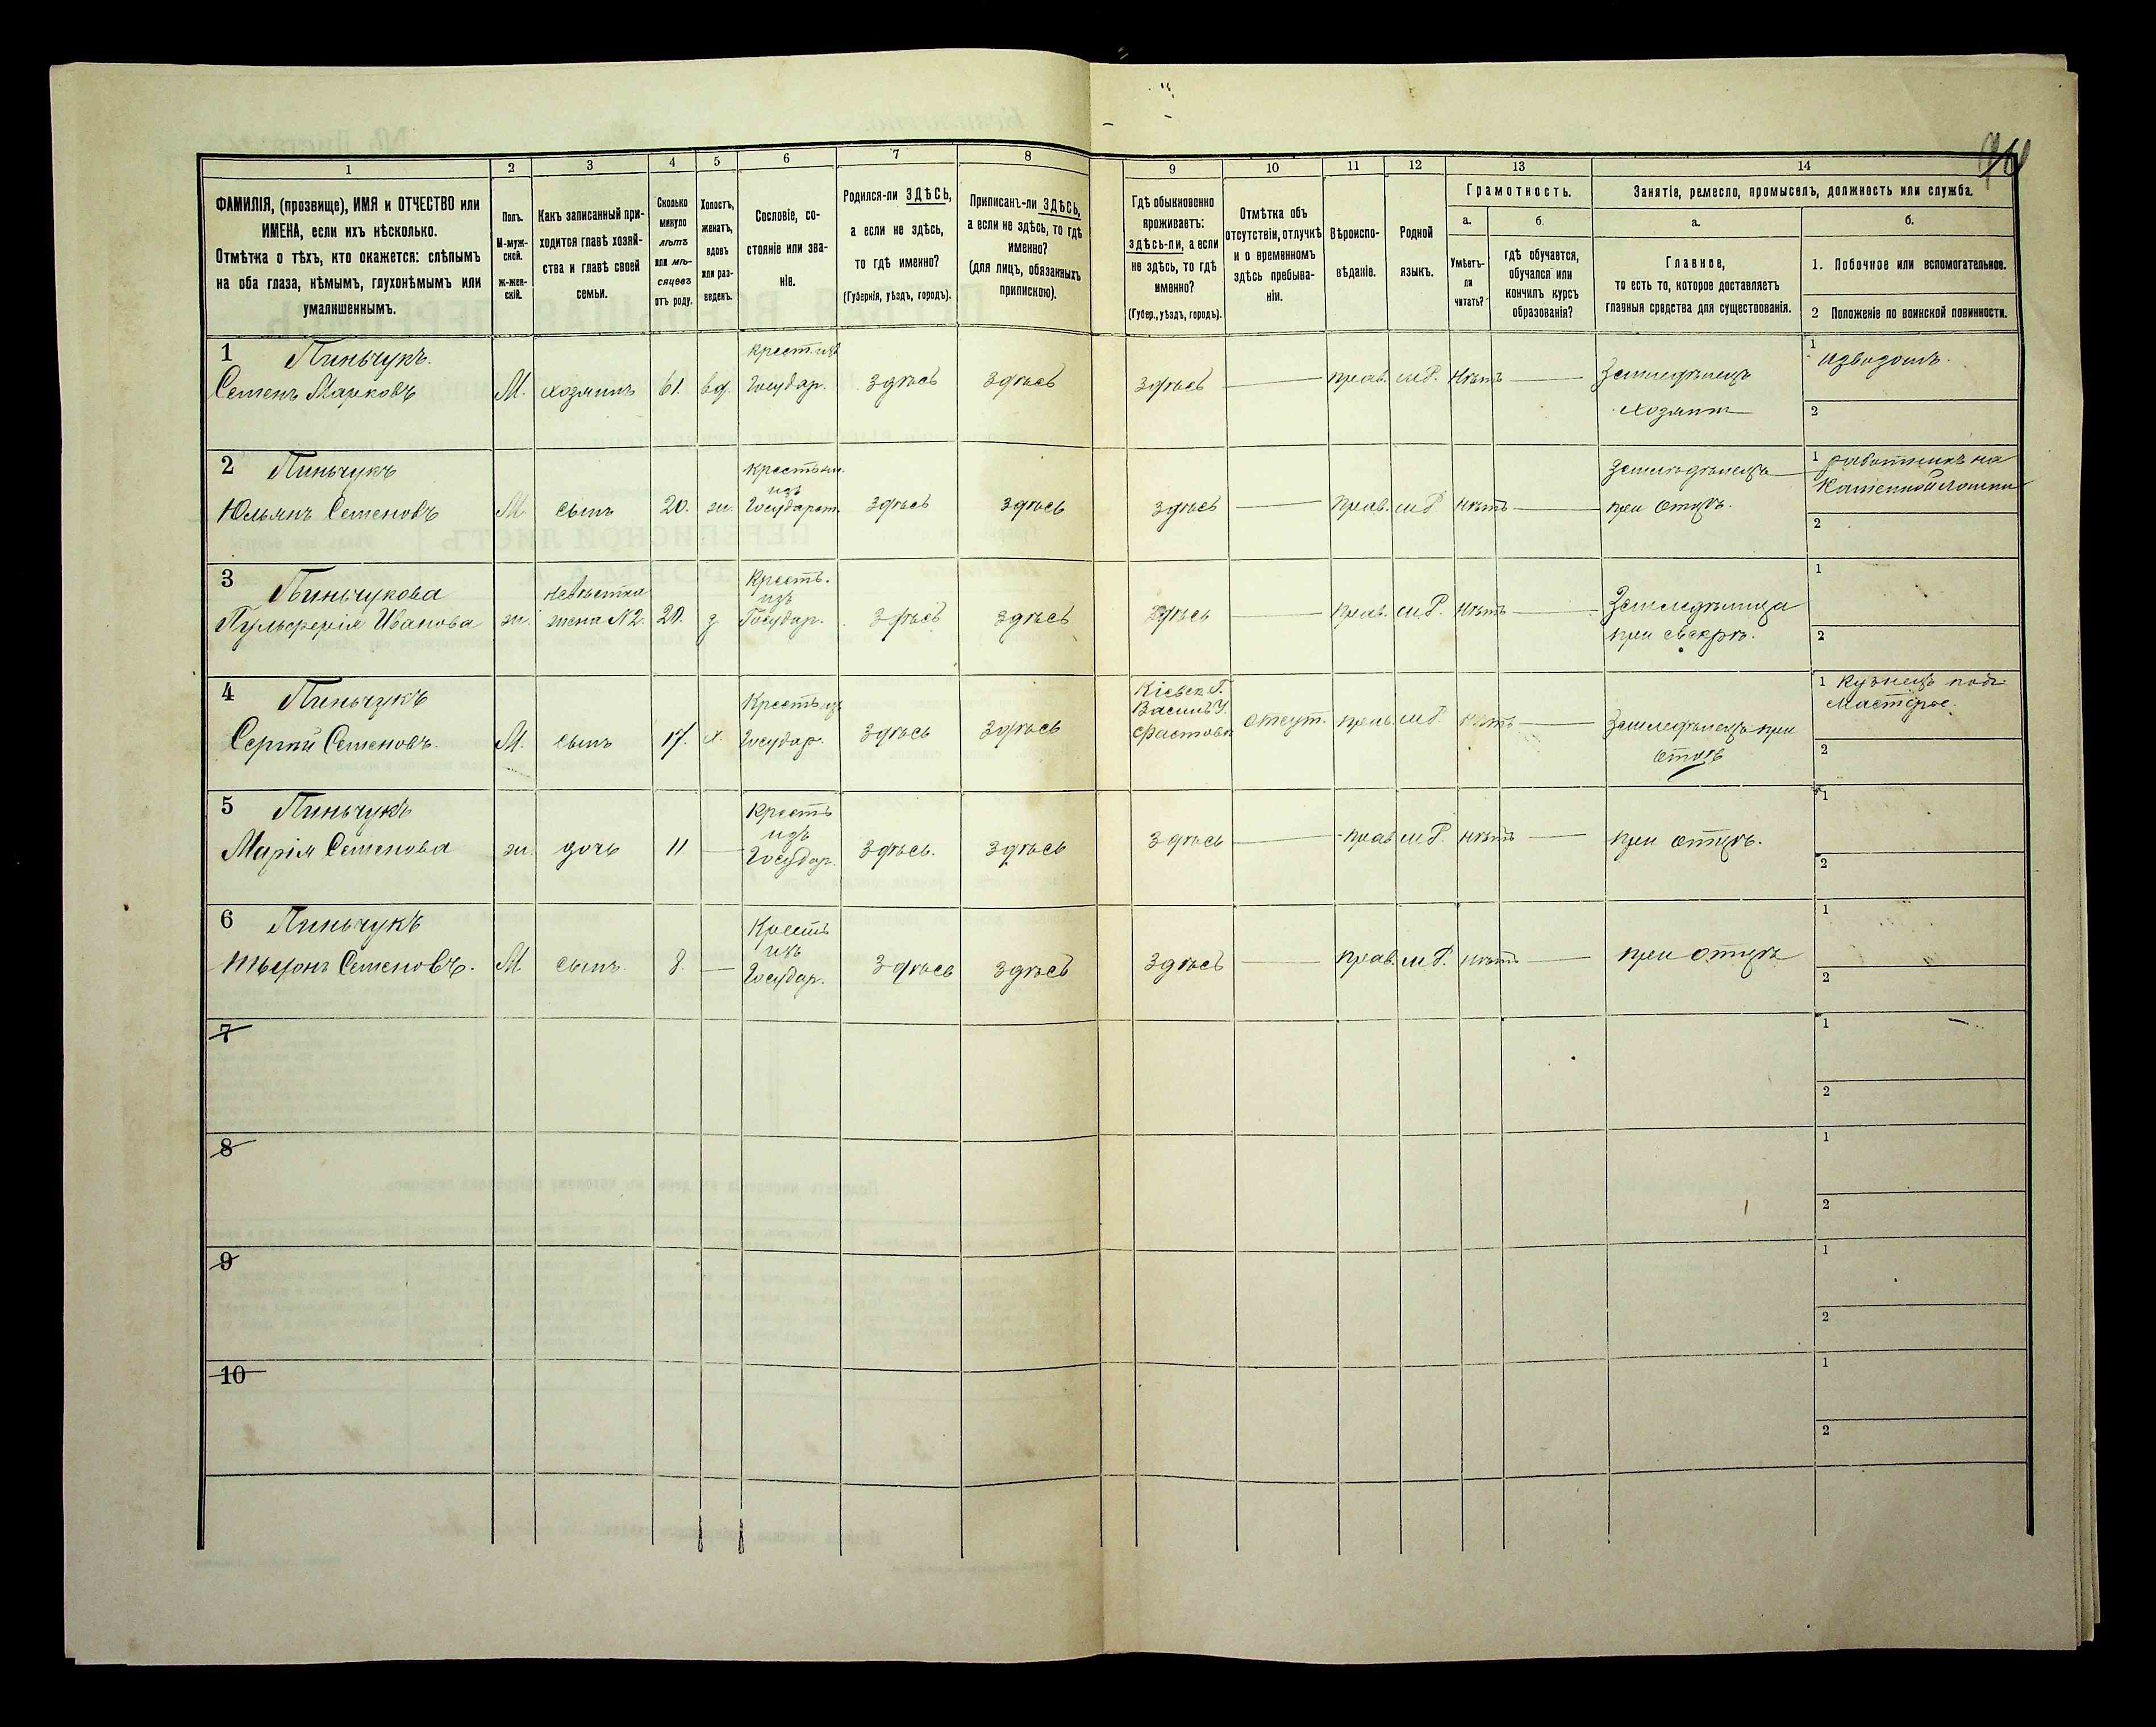 1 2 3 4 5 6 7 8 9 10 11 12 13 14
ФАМИЛІЯ, (прозвище), ИМЯ и ОТЧЕСТВО или
ИМЕНА, если ихъ нѣсколько.
Отмѣтка о тѣхъ, кто окажется: слѣпымъ
на оба глаза, нѣмымъ, глухонѣмымъ или
умалишеннымъ.
Полъ.
М-муж-
ской.
ж-жен-
скій.
Какъ записанный при-
ходится главѣ хозяй-
ства и главѣ своей
семьи.
Сколько
минуло
лѣтъ
или мѣ-
сяцевъ
отъ роду.
Холостъ,
женатъ,
вдовъ
или раз-
веденъ.
Сословіе, со-
стояніе или зва-
ніе.
Родился-ли ЗДѢСЬ,
а если не здѣсь,
то гдѣ именно?
(Губернія, уѣздъ, городъ).
Приписанъ-ли ЗДѢСЬ,
а если не здѣсь, то гдѣ
именно?
(для лицъ, обязанныхъ
припискою).
Гдѣ обыкновенно
проживаетъ:
здѣсь-ли, а если
не здѣсь, то гдѣ
именно?
(Губер., уѣздъ, городъ).
Отмѣтка объ
отсутствіи, отлучкѣ
и о временномъ
здѣсь пребыва-
ніи.
Вѣроиспо-
вѣданіе.
Родной
языкъ.
Грамотность.
а.
Умѣетъ-
ли
читать?
б.
гдѣ обучается,
обучался или
кончилъ курсъ
образованія?
Занятіе, ремесло, промыселъ, должность или служба.
а.
Главное,
то есть то, которое доставляетъ
главныя средства для существованія.
б.
1. Побочное или вспомогательное.
2 Положеніе по воинской повинности.
1 Пиньчукъ.
Семенъ Марковъ
М. хозяинъ 61. вд.
Крест изъ
Государ.
здѣсь здѣсь здѣсь
прав. м.Р. нѣтъ
Земледѣлецъ
хозяинъ
1 извозомъ.
2
2 Пиньчукъ
Юльянъ Семеновъ
М. сынъ 20. ж.
Крестьян.
изъ
Государст.
здѣсь здѣсь здѣсь
прав. м.Р. нѣтъ
Земледѣлецъ
при отцѣ.
1 работникъ на
2
3 Пиньчукова
Пульферія Иванова
ж.
невѣстка
жена N2. 20. з.
Кресть.
изъ
Государ.
здѣсь здѣсь здѣсь
прав. м.Р. нѣтъ
Земледѣлица
при свекрѣ.
1
2
4 Пиньчукъ
Сергѣй Семеновъ.
М. сынъ 17. х.
Кресть изъ
Государ.
здѣсь здѣсь
Кіевск. Г.
Васильк У.
Фастовъ
отсут. прав. м.Р. нѣтъ
Земледѣлецъ при
отцѣ
1 Кузнецъ под-
мастерье.
2
5 Пиньчукъ
Марія Семенова
ж. дочь 11
Кресть
изъ
Государ.
здѣсь. здѣсь здѣсь
прав. м.Р. нѣтъ
при отцѣ.
1
2
6 Пиньчукъ
Семеновъ.
М. сынъ. 8.
Кресть
изъ
Государ.
здѣсь здѣсь здѣсь
прав. м.Р. нѣтъ
при отцѣ
1
2
7
1
2
8
1
2
9
1
2
10
1
2